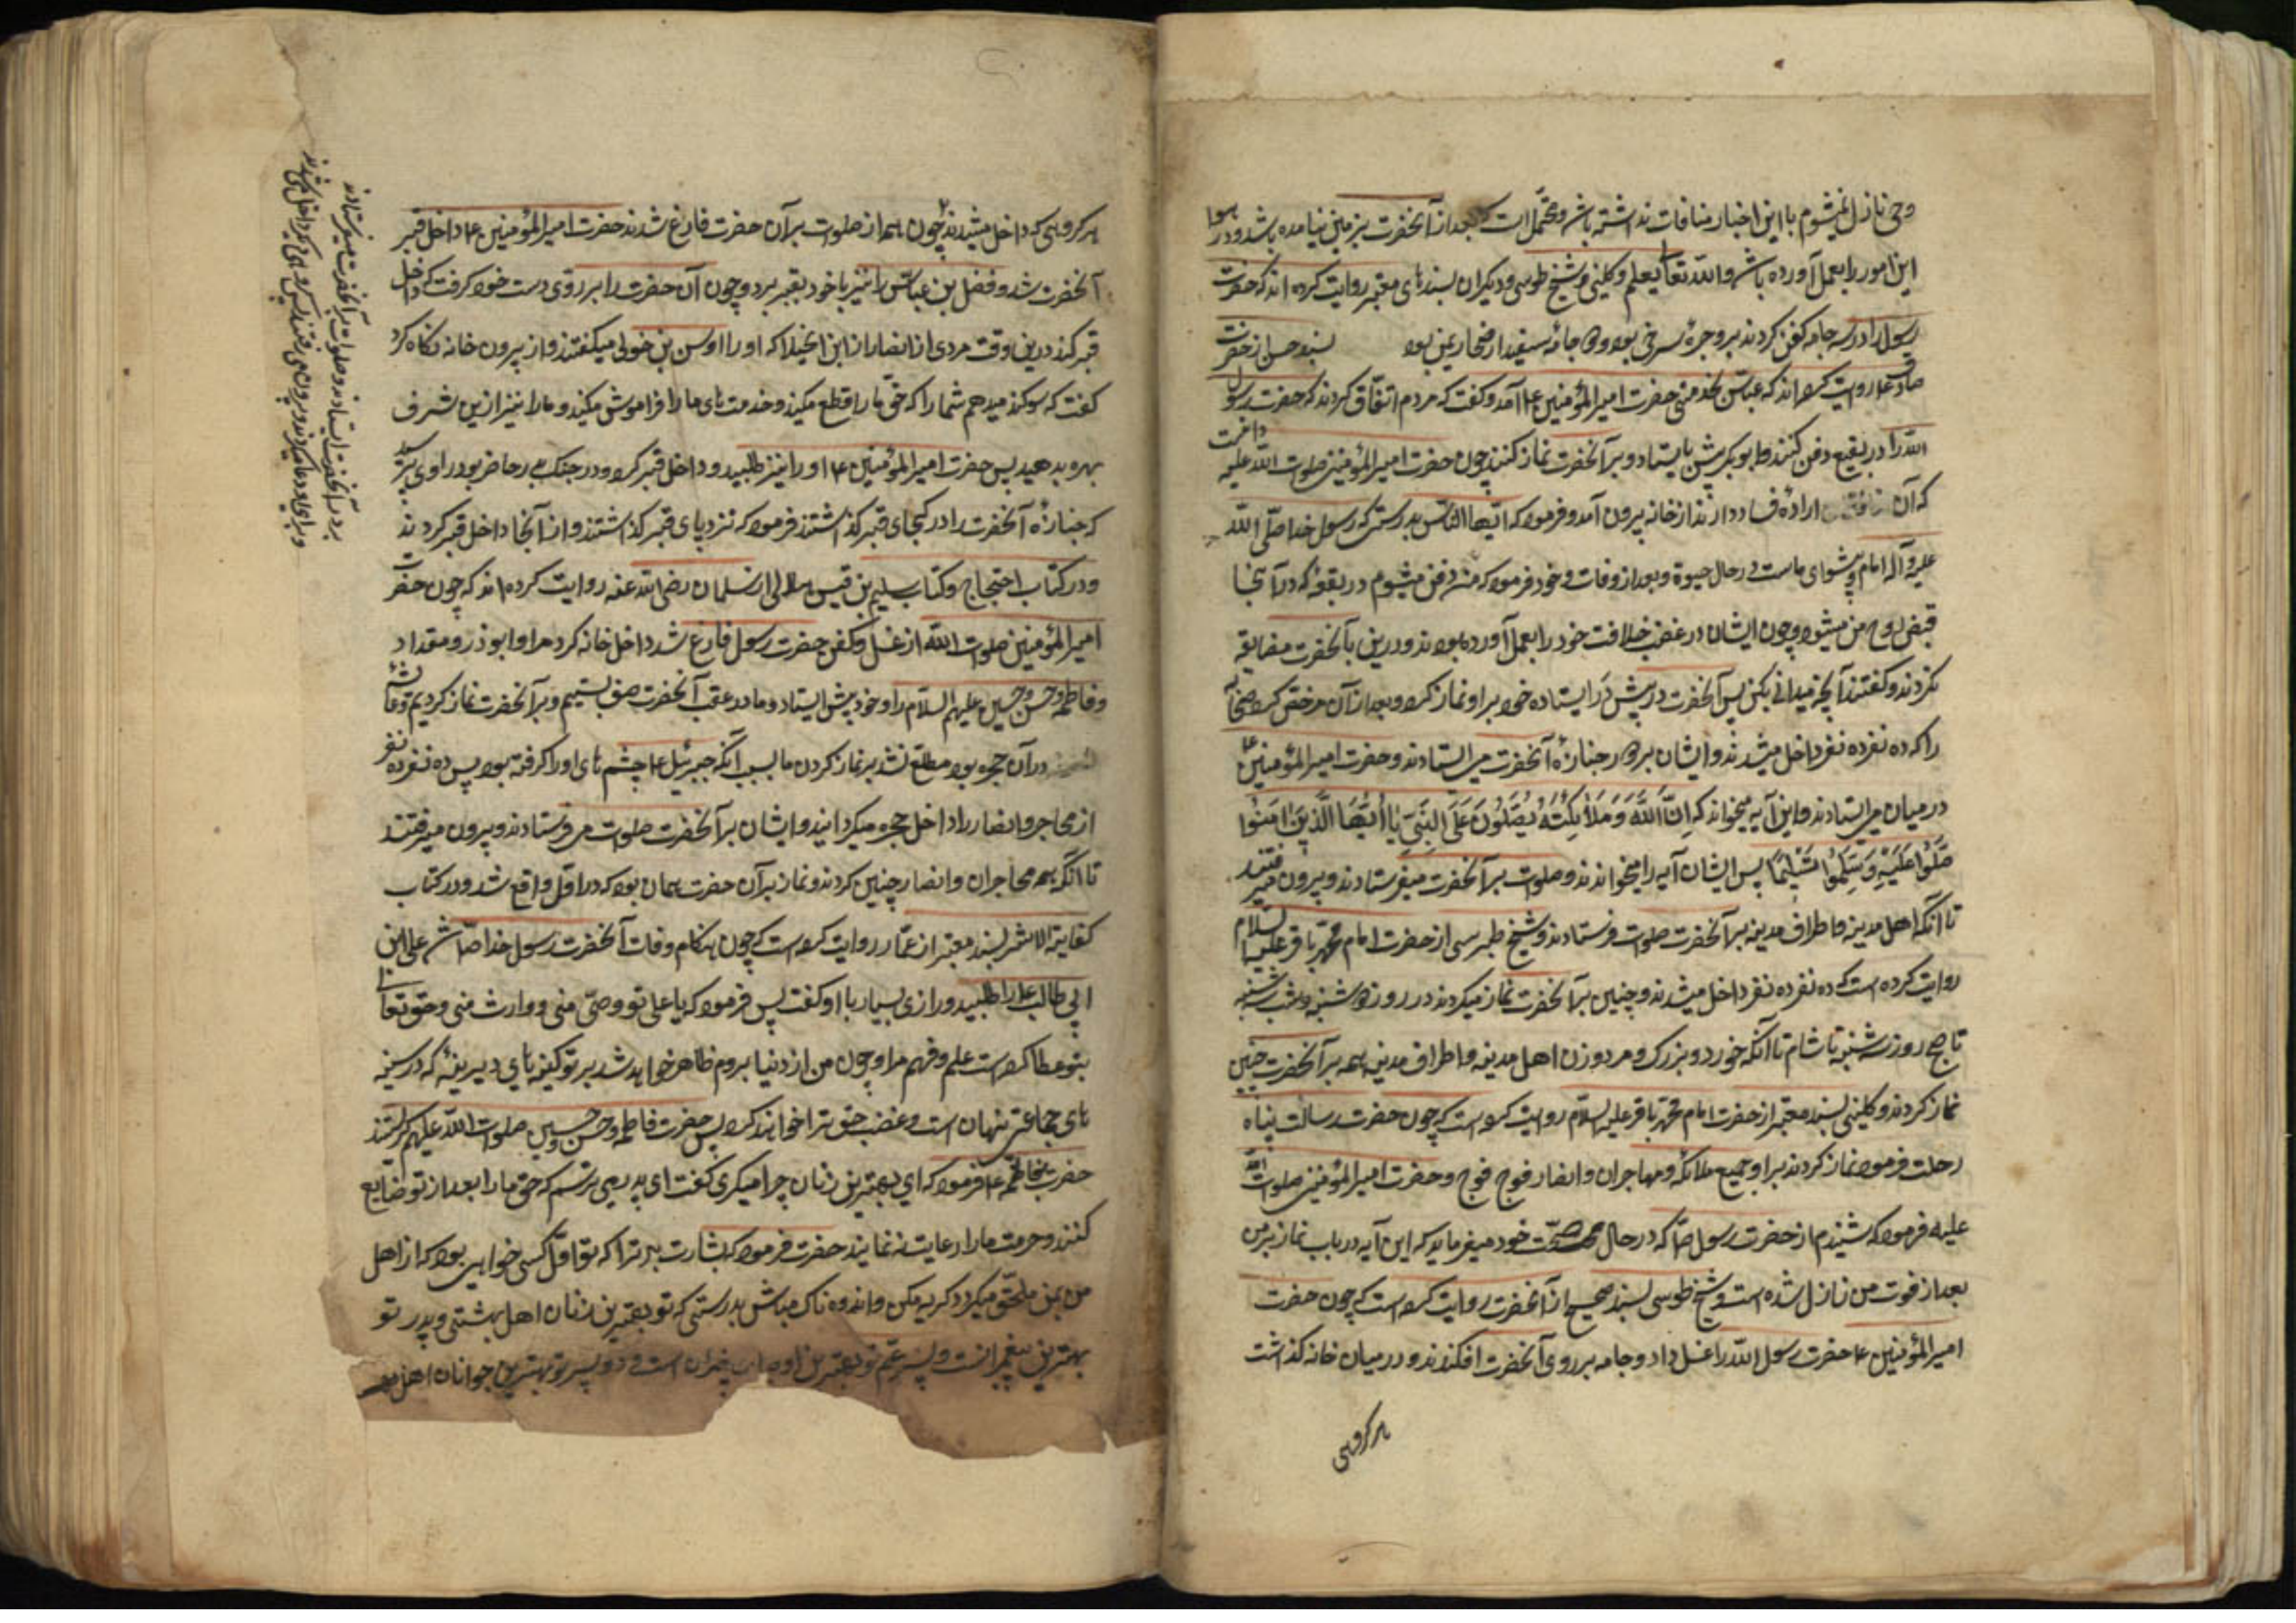 وحی نازل نمیشوم با این اخبار منافات نداشته باشد و محتمل است که بعد از آنحضرت بزمین نیامده باشد و در هوا
این امور را بعمل آورده باشد والله تعالی یعلم و کلینی و شیخ طوسی و دیگران بسندهای معتبر روایت کرده اند که حضرت
رسول را در سه جامه کفن کردند برد حبرهٔ سرخی بود و دو جامهٔ سفید از صحار یمن بود بسند حسن از حضرت
صادق ع روایت کرده اند که عباس بخدمت حضرت امیر المؤمنین ع آمد و گفت که مردم اتفاق کردند که حضرت رسول
الله را در بقیع دفن کنند و ابوبکر پیش بایستاد و بر آنحضرت نماز کنند چون حضرت امیر المؤمنین صلوات الله علیه دانست
که آن ارادهٔ فساد دارند از خانه بیرون آمد و فرمود که ایها الناس بدرستی که رسول خدا صلی الله
علیه و آله امام و پیشوای ماست در حال حیوة و بعد از وفات و خود فرمود که من دفن میشوم در بقعهٔ که در آنجا
قبض روح من میشود و چون ایشان در غصب خلافت خود را بعمل آورده بودند و درین بآنحضرت مضایقه
نکردند و گفتند آنچه میدانی بکن پس آنحضرت در پیش در ایستاده خود بر او نماز کرد و بعد از آن مرخص کرد صحابه
را که ده نفر ده نفر داخل میشدند و ایشان بر دور جنازهٔ آنحضرت می ایستادند و حضرت امیر المؤمنین ع
در میان می ایستادند و این آیه میخواند که اِنَّ اللّٰهَ وَمَلاٰئِکَتَهُ یُصَلُّونَ عَلَی النَّبِیِّ یٰا اَیُّهَا الَّذینَ اٰمَنُوا
صَلُّوا عَلَیْهِ وَسَلِّمُوا تَسْلیماً پس ایشان آیه را میخواندند و صلوات بر آنحضرت میفرستادند و بیرون میرفتند
تا آنکه اهل مدینه و اطراف مدینه بر آنحضرت صلوات فرستادند و شیخ طبرسی از حضرت امام محمد باقر علیه السلام
روایت کرده است که ده نفر ده نفر داخل میشدند و چنین بر آنحضرت نماز میکردند در روز دوشنبه و شب سه شنبه
تا صبح روز سه شنبه تا شام تا آنکه خورد و بزرک و مرد و زن اهل مدینه و اطراف مدینه همه بر آنحضرت چنین
نماز کردند و کلینی بسند معتبر از حضرت امام محمد باقر علیه السلام روایت کرده است که چون حضرت رسالت پناه
رحلت فرمود نماز کردند بر او جمیع ملائکه و مهاجران و انصار فوج فوج و حضرت امیر المؤمنین صلوات الله
علیه فرمود که شنیدم از حضرت رسول ص که در حال صحت خود میفرماید که این آیه در باب نماز بر من
بعد از فوت من نازل شده است و شیخ طوسی بسند صحیح از آنحضرت روایت کرده است که چون حضرت
امیر المؤمنین ع حضرت رسول الله را غسل داد و جامه بر روی آنحضرت افکندند و در میان خانه گذاشت
هر گروهی
هر گروهی که داخل میشدند چون همه از صلوات بر آن حضرت فارغ شدند حضرت امیر المؤمنین ع داخل قبر
آنحضرت شد و فضل بن عباس را نیز با خود بقبر برد و چون آن حضرت را بر روی دست خود گرفت که داخل
قبر کند درین وقت مردی از انصار از ابن الخیلا که او را اوس بن خولی میگفتند و از بیرون خانه نگاه کرد
گفت که سوگند میدهم شما را که حق ما را قطع مکنید و خدمت های ما را فراموش مکنید و ما را نیز ازین شرف
بهره بدهید پس حضرت امیر المؤمنین ع او را نیز طلبید و داخل قبر کرد و در جنک بدر حاضر بود راوی پرسید
که جنازهٔ آنحضرت را در کجای قبر گذاشتند فرمود که نزد پای قبر گذاشتند و از آنجا داخل قبر کردند
و در کتاب احتجاج و کتاب سلیم بن قیس هلالی از سلمان رضی الله عنه روایت کرده اند که چون حضرت
امیر المؤمنین صلوات الله از غسل و کفن حضرت رسول فارغ شد داخل خانه کرد مرا و ابوذر و مقداد
و فاطمه و حسن و حسین علیهم السلام را و خود پیش ایستاد و ما در عقب آنحضرت صف بستیم و بر آنحضرت نماز کردیم و عایشه
در آن حجره بود مطلع نشد بر نماز کردن ما بسبب آنکه جبرئیل ع چشم های او را گرفته بود پس ده نفر ده نفر
از مهاجر و انصار را داخل حجره میگردانید و ایشان بر آنحضرت صلوات می فرستادند و بیرون میرفتند
تا آنکه همه مهاجران و انصار چنین کردند و نماز بر آن حضرت همان بود که در اول واقع شد و در کتاب
کفایة الاثر بسند معتبر از عمار روایت کرده است که چون هنگام وفات آنحضرت رسول خدا ص شد علی ابن
ابی طالب ع را طلبید و رازی بسیار با او گفت پس فرمود که یا علی تو وصی منی و وارث منی و حق تعالی
بتو عطا کرده است علم و فهم مرا و چون من از دنیا بروم ظاهر خواهد شد بر تو کینه های دیرینهٔ که در سینه
های جماعتی پنهان است و غصب حق ترا خواهند کرد پس حضرت فاطمه و حسن و حسین صلوات الله علیهم گریستند
حضرت بفاطمه ع فرمود که ای بهترین زنان چرا میگری گفت ای پدر می ترسم که حق ما را بعد از تو ضایع
کنند و حرمت ما را رعایت نه نمایند حضرت فرمود که بشارت باد ترا که تو اول کسی خواهی بود که از اهل
من بمن ملحق میگردد گریه مکن و اندوه ناک مباش بدرستی که تو بهترین زنان اهل بهشتی و پدر تو
بهترین پیغمبرانست و پسر عم تو بهترین اوصیای پیغمبران است و دو پسر تو بهترین جوانان اهل